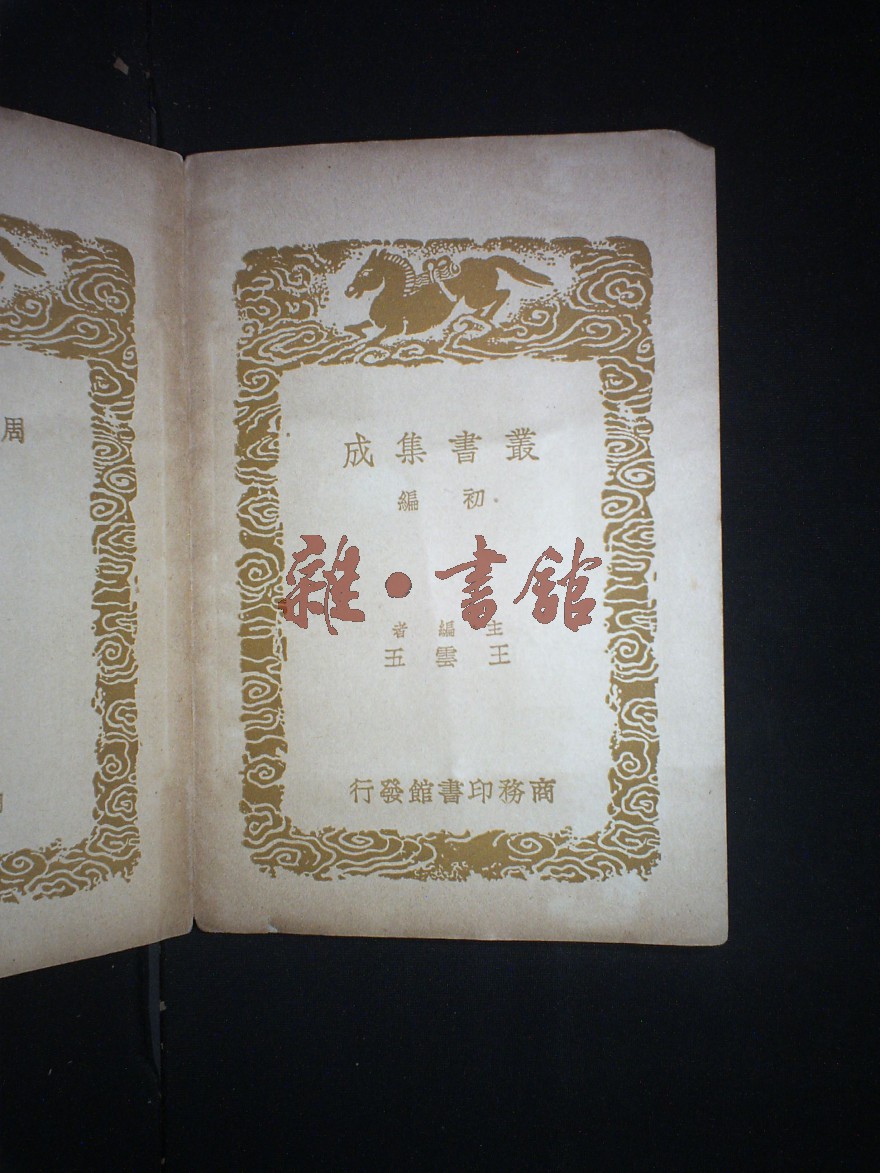 周
叢書集成
初編
雜·書館
主編者
王雲五
商務印書館發行